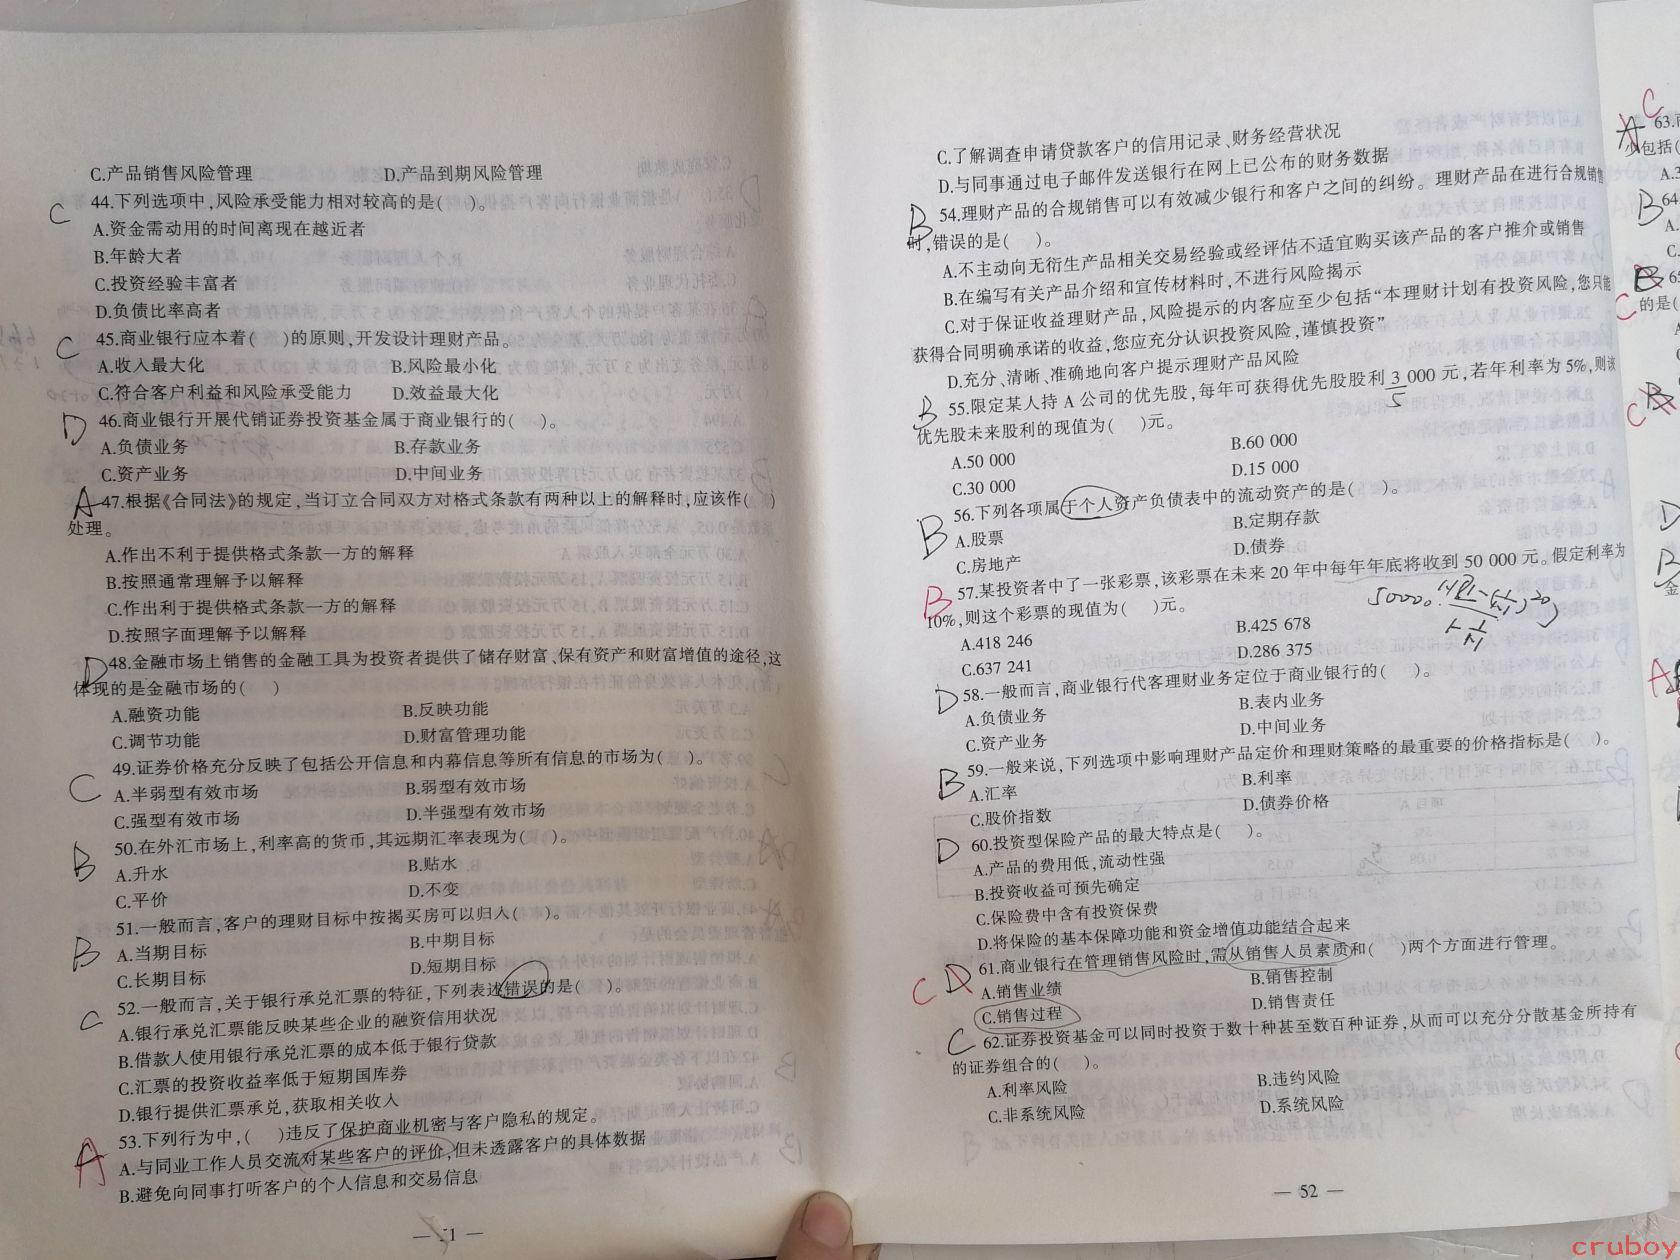 C.产品销售风险管理 D.产品到期风险管理
C 44.下列选项中,风险承受能力相对较高的是( )。
A.资金需动用的时间离现在越近者
B.年龄大者
C.投资经验丰富者
D.负债比率高者
C 45.商业银行应本着( )的原则,开发设计理财产品。
A.收入最大化 B.风险最小化
C.符合客户利益和风险承受能力 D.效益最大化
D 46.商业银行开展代销证券投资基金属于商业银行的( )。
A.负债业务 B.存款业务
C.资产业务 D.中间业务
A 47.根据《合同法》的规定,当订立合同双方对格式条款有两种以上的解释时,应该作( )
处理。
A.作出不利于提供格式条款一方的解释
B.按照通常理解予以解释
C.作出利于提供格式条款一方的解释
D.按照字面理解予以解释
D 48.金融市场上销售的金融工具为投资者提供了储存财富、保有资产和财富增值的途径,这
体现的是金融市场的( )
A.融资功能 B.反映功能
C.调节功能 D.财富管理功能
49.证券价格充分反映了包括公开信息和内幕信息等所有信息的市场为( )。
C A.半弱型有效市场 B.弱型有效市场
C.强型有效市场 D.半强型有效市场
50.在外汇市场上,利率高的货币,其远期汇率表现为( )。
B A.升水 B.贴水
C.平价 D.不变
51.一般而言,客户的理财目标中按揭买房可以归人( )。
B A.当期目标 B.中期目标
C.长期目标 D.短期目标
52.一般而言,关于银行承兑汇票的特征,下列表述错误的是( )。
C A.银行承兑汇票能反映某些企业的融资信用状况
B.借款人使用银行承兑汇票的成本低于银行贷款
C.汇票的投资收益率低于短期国库券
D.银行提供汇票承兑,获取相关收人
53.下列行为中,( )违反了保护商业机密与客户隐私的规定。
A A.与同业工作人员交流对某些客户的评价,但未透露客户的具体数据
B.避免向同事打听客户的个人信息和交易信息
C.了解调查申请贷款客户的信用记录、财务经营状况
D.与同事通过电子邮件发送银行在网上已公布的财务数据
B 54.理财产品的合规销售可以有效减少银行和客户之间的纠纷。理财产品在进行合规销售
时,错误的是( )。
A.不主动向无衍生产品相关交易经验或经评估不适宜购买该产品的客户推介或销售
B.在编写有关产品介绍和宣传材料时,不进行风险揭示
C.对于保证收益理财产品,风险提示的内客应至少包括“本理财计划有投资风险,您只能
获得合同明确承诺的收益,您应充分认识投资风险,谨慎投资”
D.充分、清晰、准确地向客户提示理财产品风险
B 55.限定某人持 A 公司的优先股,每年可获得优先股股利 3 000 元,若年利率为 5%,则该
5
优先股未来股利的现值为( )元。
A.50 000 B.60 000
C.30 000 D.15 000
56.下列各项属于个人资产负债表中的流动资产的是( )。
B A.股票 B.定期存款
C.房地产 D.债券
B 57.某投资者中了一张彩票,该彩票在未来 20 年中每年年底将收到 50 000 元。假定利率为
10%,则这个彩票的现值为( )元。
A.418 246 B.425 678
C.637 241 D.286 375
D 58.一般而言,商业银行代客理财业务定位于商业银行的( )。
A.负债业务 B.表内业务
C.资产业务 D.中间业务
59.一般来说,下列选项中影响理财产品定价和理财策略的最重要的价格指标是( )。
B A.汇率 B.利率
C.股价指数 D.债券价格
D 60.投资型保险产品的最大特点是( )。
A.产品的费用低,流动性强
B.投资收益可预先确定
C.保险费中含有投资保费
D.将保险的基本保障功能和资金增值功能结合起来
61.商业银行在管理销售风险时,需从销售人员素质和( )两个方面进行管理。
C D A.销售业绩 B.销售控制
C.销售过程 D.销售责任
C 62.证券投资基金可以同时投资于数十种甚至数百种证券,从而可以充分分散基金所持有
的证券组合的( )。
A.利率风险 B.违约风险
C.非系统风险 D.系统风险
— 52 —
C
A 63.
少包括(
B 64
的是(
cruboy